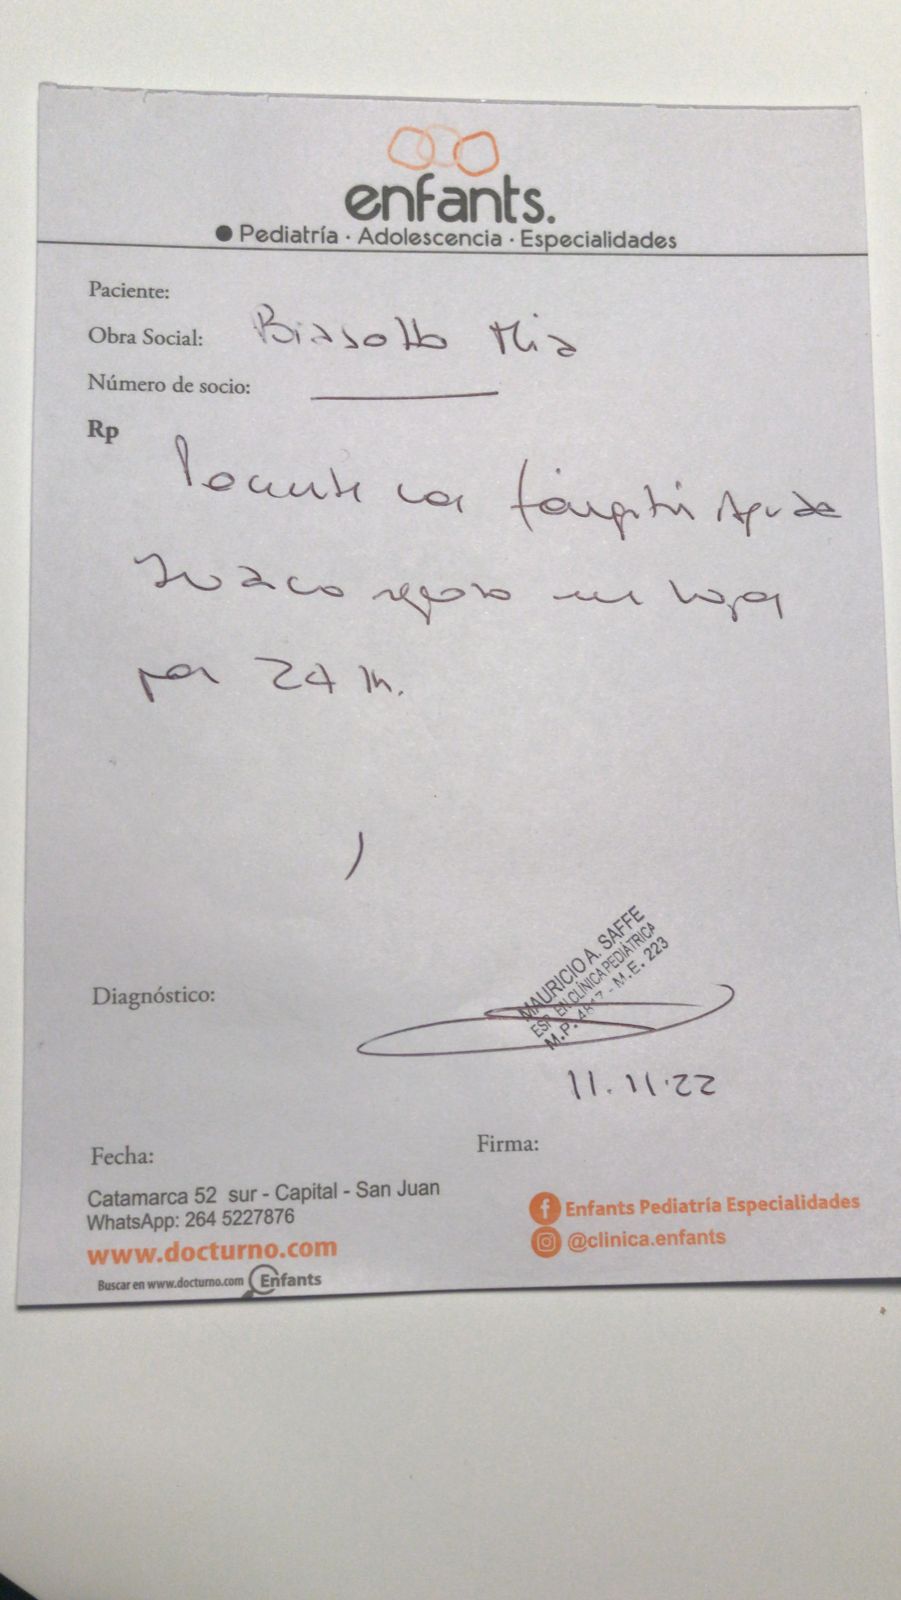 enfants.
Pediatría · Adolescencia · Especialidades
Paciente:
Obra Social: Biasotto Mia
Número de socio:
Rp
Paciente con faringitis Aguda
Indico reposo en hogar
por 24 h.
MAURICIO A. SAFFE
ESP. EN CLÍNICA PEDIATRICA
M.P. - M.E. 223
Diagnóstico:
11.11.22
Fecha:
Firma:
Catamarca 52 sur - Capital - San Juan
WhatsApp: 264 5227876
www.docturno.com
Buscar en www.docturno.com Enfants
Enfants Pediatría Especialidades
@clinica.enfants